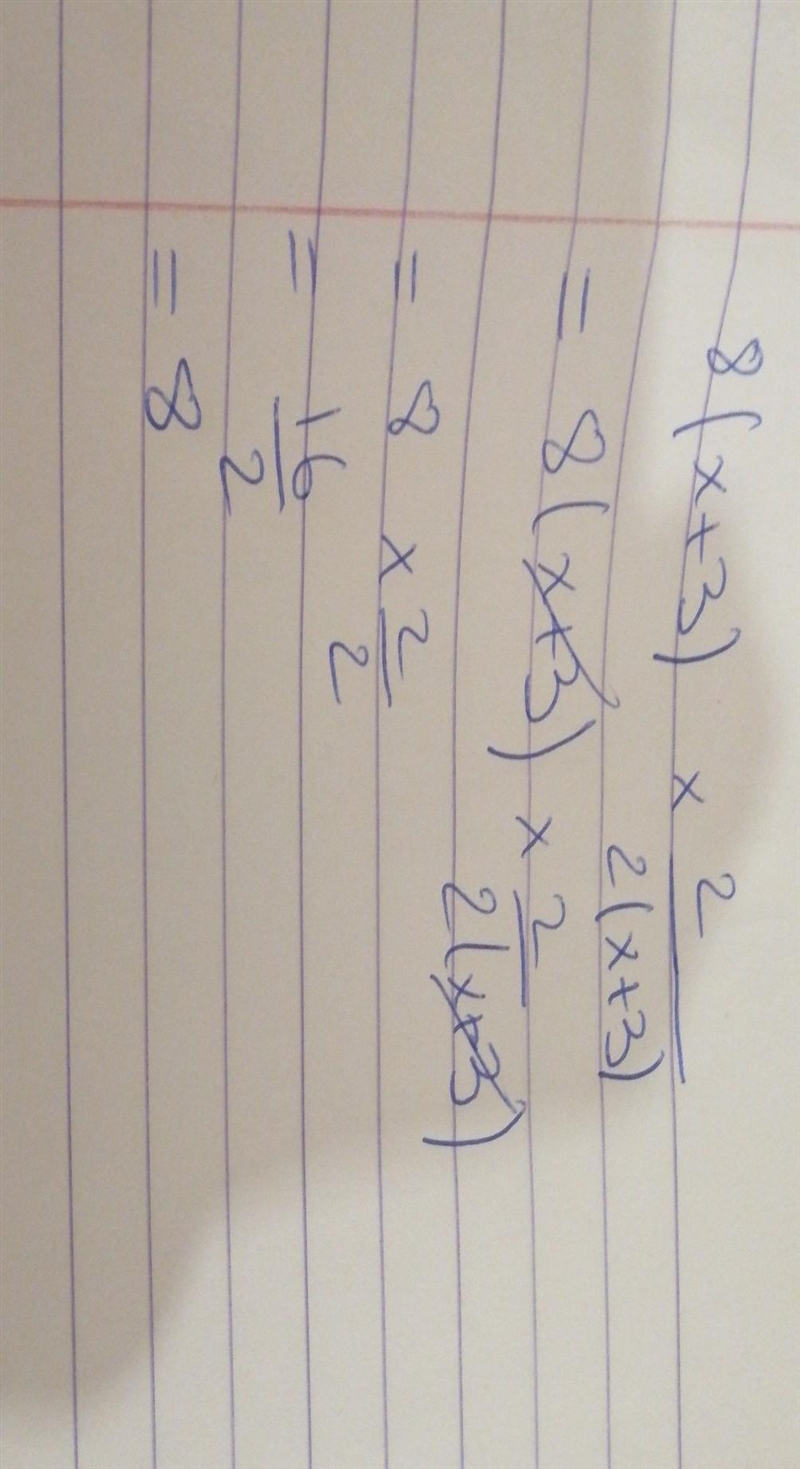 8(x+3) × 2/2(x+3)
= 8(x+3) × 2/2(x+3)
= 8 × 2/2
= 16/2
= 8